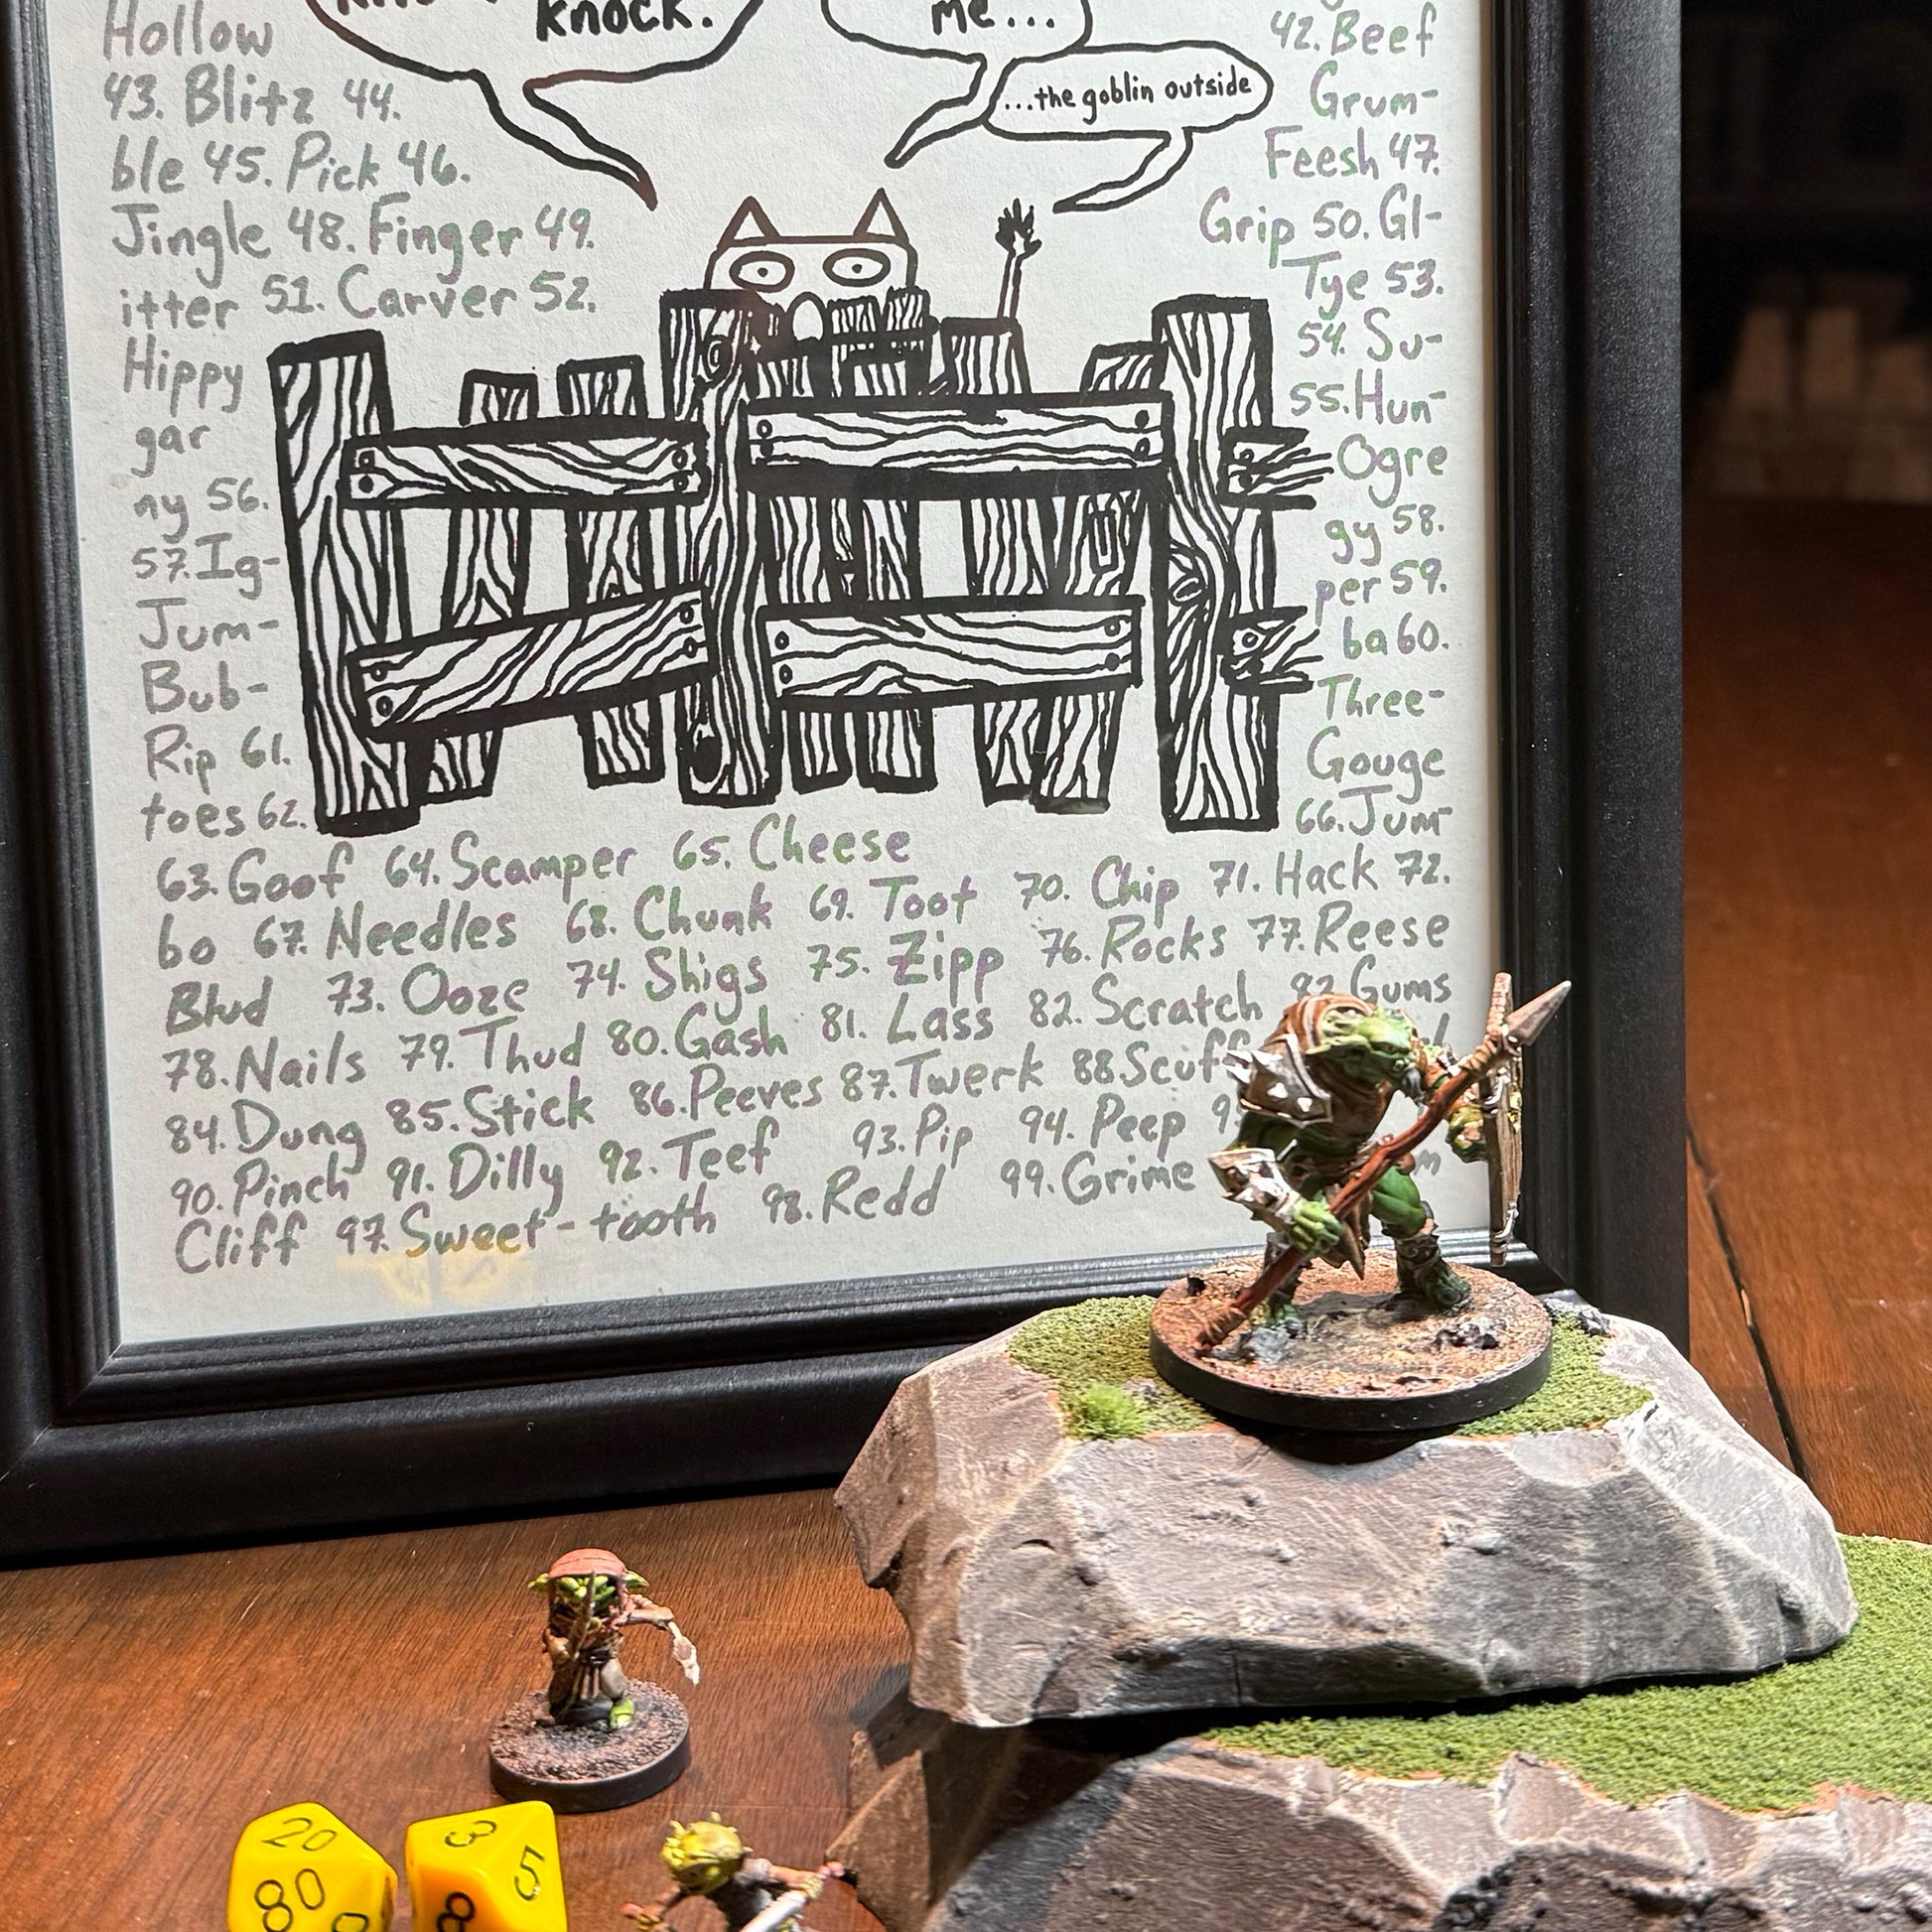 knock.
me...
...the goblin outside
Hollow 42. Beef
43. Blitz 44. Grum-
ble 45. Pick 46. Feesh 47.
Jingle 48. Finger 49. Grip 50. Gl-
itter 51. Carver 52. Tye 53.
Hippy 54. Su-
gar 55. Hun-
ny 56. Ogre
57. Ig- gy 58.
Jum- per 59.
Bub- ba 60.
Rip 61. Three-
toes 62. Gouge
63. Goof 64. Scamper 65. Cheese 66. Jum-
bo 67. Needles 68. Chunk 69. Toot 70. Chip 71. Hack 72.
Blud 73. Ooze 74. Shigs 75. Zipp 76. Rocks 77. Reese
78. Nails 79. Thud 80. Gash 81. Lass 82. Scratch 83. Gums
84. Dung 85. Stick 86. Peeves 87. Twerk 88. Scuff
90. Pinch 91. Dilly 92. Teef 93. Pip 94. Peep
Cliff 97. Sweet-tooth 98. Redd 99. Grime
20
80
3
5
8